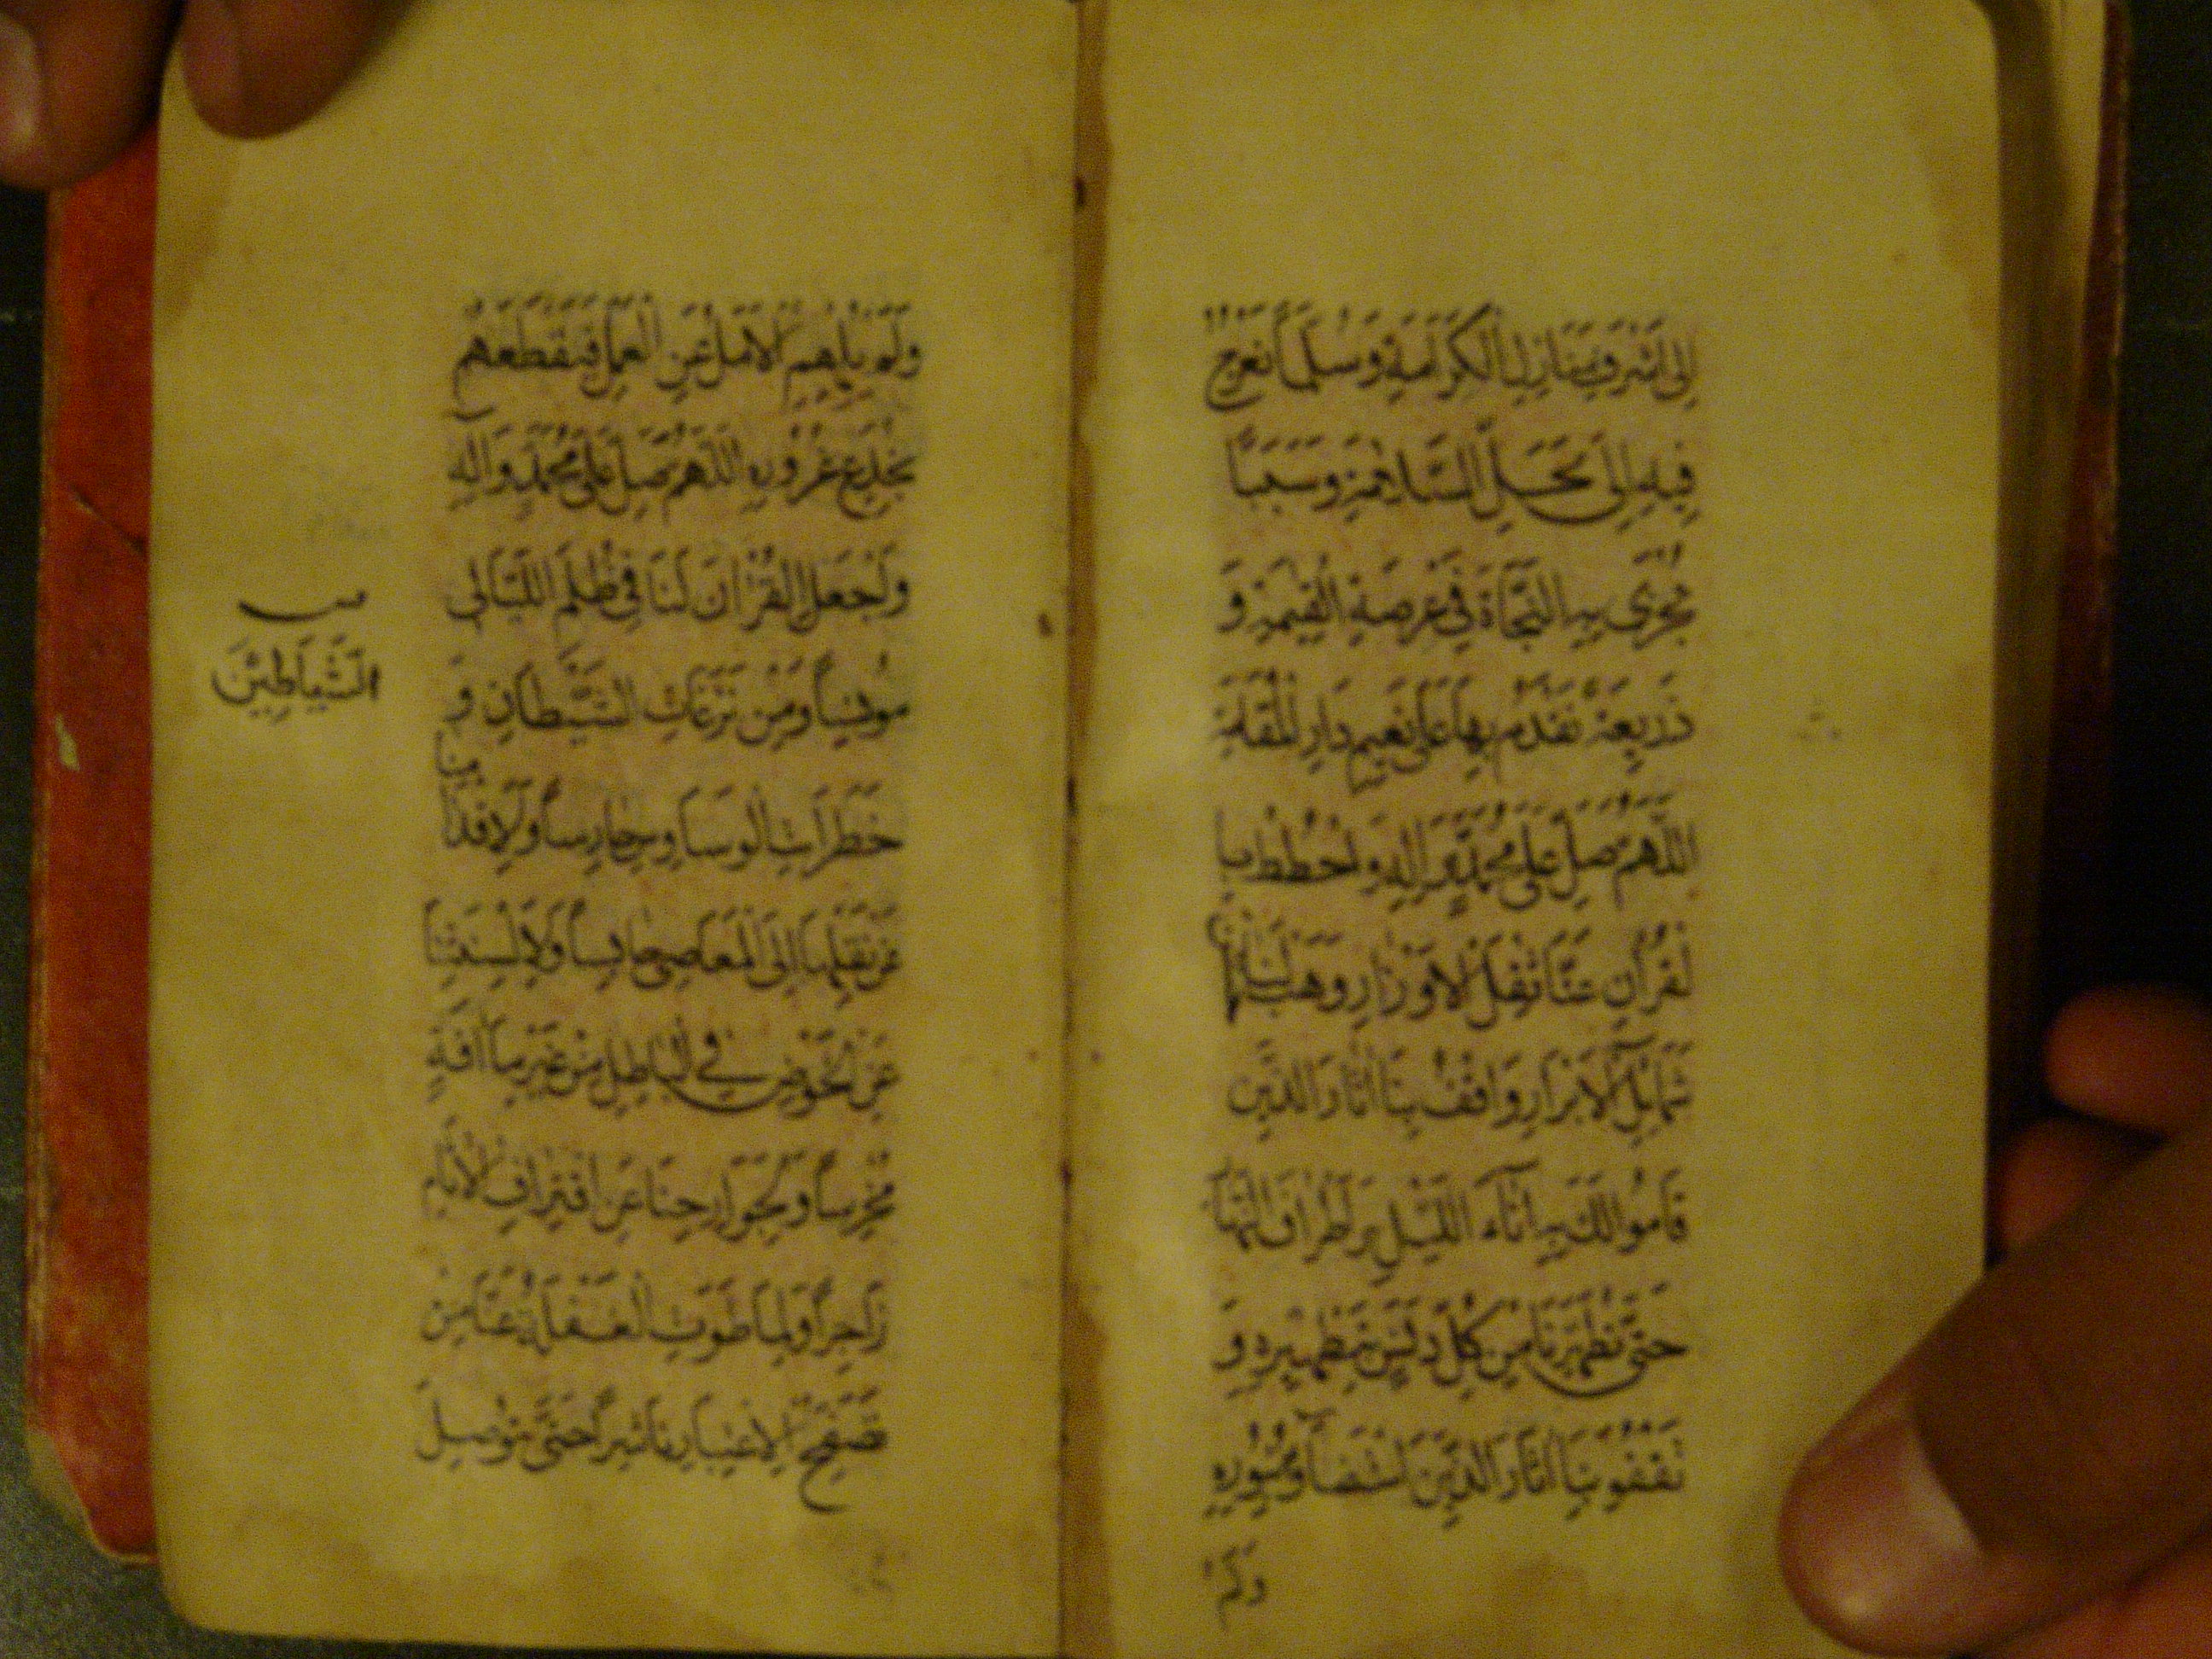 إِلَى أَشْرَفِ مَنَازِلِ الْكَرَامَةِ وَسُلَّمًا نَعْرُجُ
فِيهِ إِلَى مَحَلِّ السَّلَامَةِ وَسَبَبًا
نُجْزَى بِهِ النَّجَاةَ فِي عَرْصَةِ الْقِيٰمَةِ وَ
ذَرِيعَةً نَقْدَمُ بِهَا عَلَى نَعِيمِ دَارِ الْمُقَامَةِ
اللَّهُمَّ صَلِّ عَلَى مُحَمَّدٍ وَآلِهِ وَاحْطُطْ بِا
لْقُرْآنِ عَنَّا ثِقْلَ الْأَوْزَارِ وَهَبْ لَنَا
شَمَائِلِ الْأَبْرَارِ وَاقْفُ بِنَا آثَارَ الَّذِينَ
قَامُوا لَكَ بِهِ آنَاءَ اللَّيْلِ وَأَطْرَافَ النَّهَا
حَتَّى تُطَهِّرَنَا مِنْ كُلِّ دَنَسٍ بِتَطْهِيرِهِ وَ
تَقْفُوَ بِنَا آثَارَ الَّذِينَ اسْتَضَاؤُا بِنُورِهِ
وَلَمْ
وَلَمْ يُلْهِهِمُ الْأَمَلُ عَنِ الْعَمَلِ فَيَقْطَعَهُمْ
بِخُدَعِ غُرُورِهِ اللَّهُمَّ صَلِّ عَلَى مُحَمَّدٍ وَآلِهِ
وَاجْعَلِ الْقُرْآنَ لَنَا فِي ظُلَمِ اللَّيَالِي
مُونِسًا وَمِنْ نَزَغَاتِ الشَّيْطَانِ وَ
الشَّيَاطِيْنِ
خَطَرَاتِ الْوَسَاوِسِ حَارِسًا وَلِأَقْدَا
مِنَا
عَنْ نَقْلِهَا إِلَى الْمَعَاصِي حَابِسًا وَلِأَلْسِنَتِنَا
عَنِ الْخَوْضِ فِي الْبَاطِلِ مِنْ غَيْرِ مَا آفَةٍ
مُخْرِسًا وَلِجَوَارِحِنَا عَنِ اقْتِرَافِ الْآثَامِ
زَاجِرًا وَلِمَا طَوَتِ الْغَفْلَةُ عَنَّا مِنْ
تَصَفُّحِ الْاِعْتِبَارِ نَاشِرًا حَتَّى تُوْصِلَ